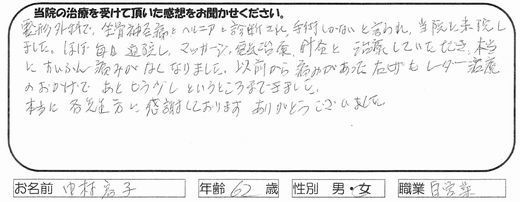 当院の治療を受けて頂いた感想をお聞かせください。
整形外科で、坐骨神経痛とヘルニアと診断され、手術しかないと言われ、当院に来院し
ました。ほぼ毎日通院し、マッサージ、電気治療、針灸と治療していただき、本当
にずいぶん痛みがなくなりました。以前から痛みがあった左ひざもレーダー治療
のおかげであともう少しというところまできました。
本当に各先生方に感謝しております ありがとうございました
お名前 中村 子 年齢 62 歳 性別 男・女 職業 自営業